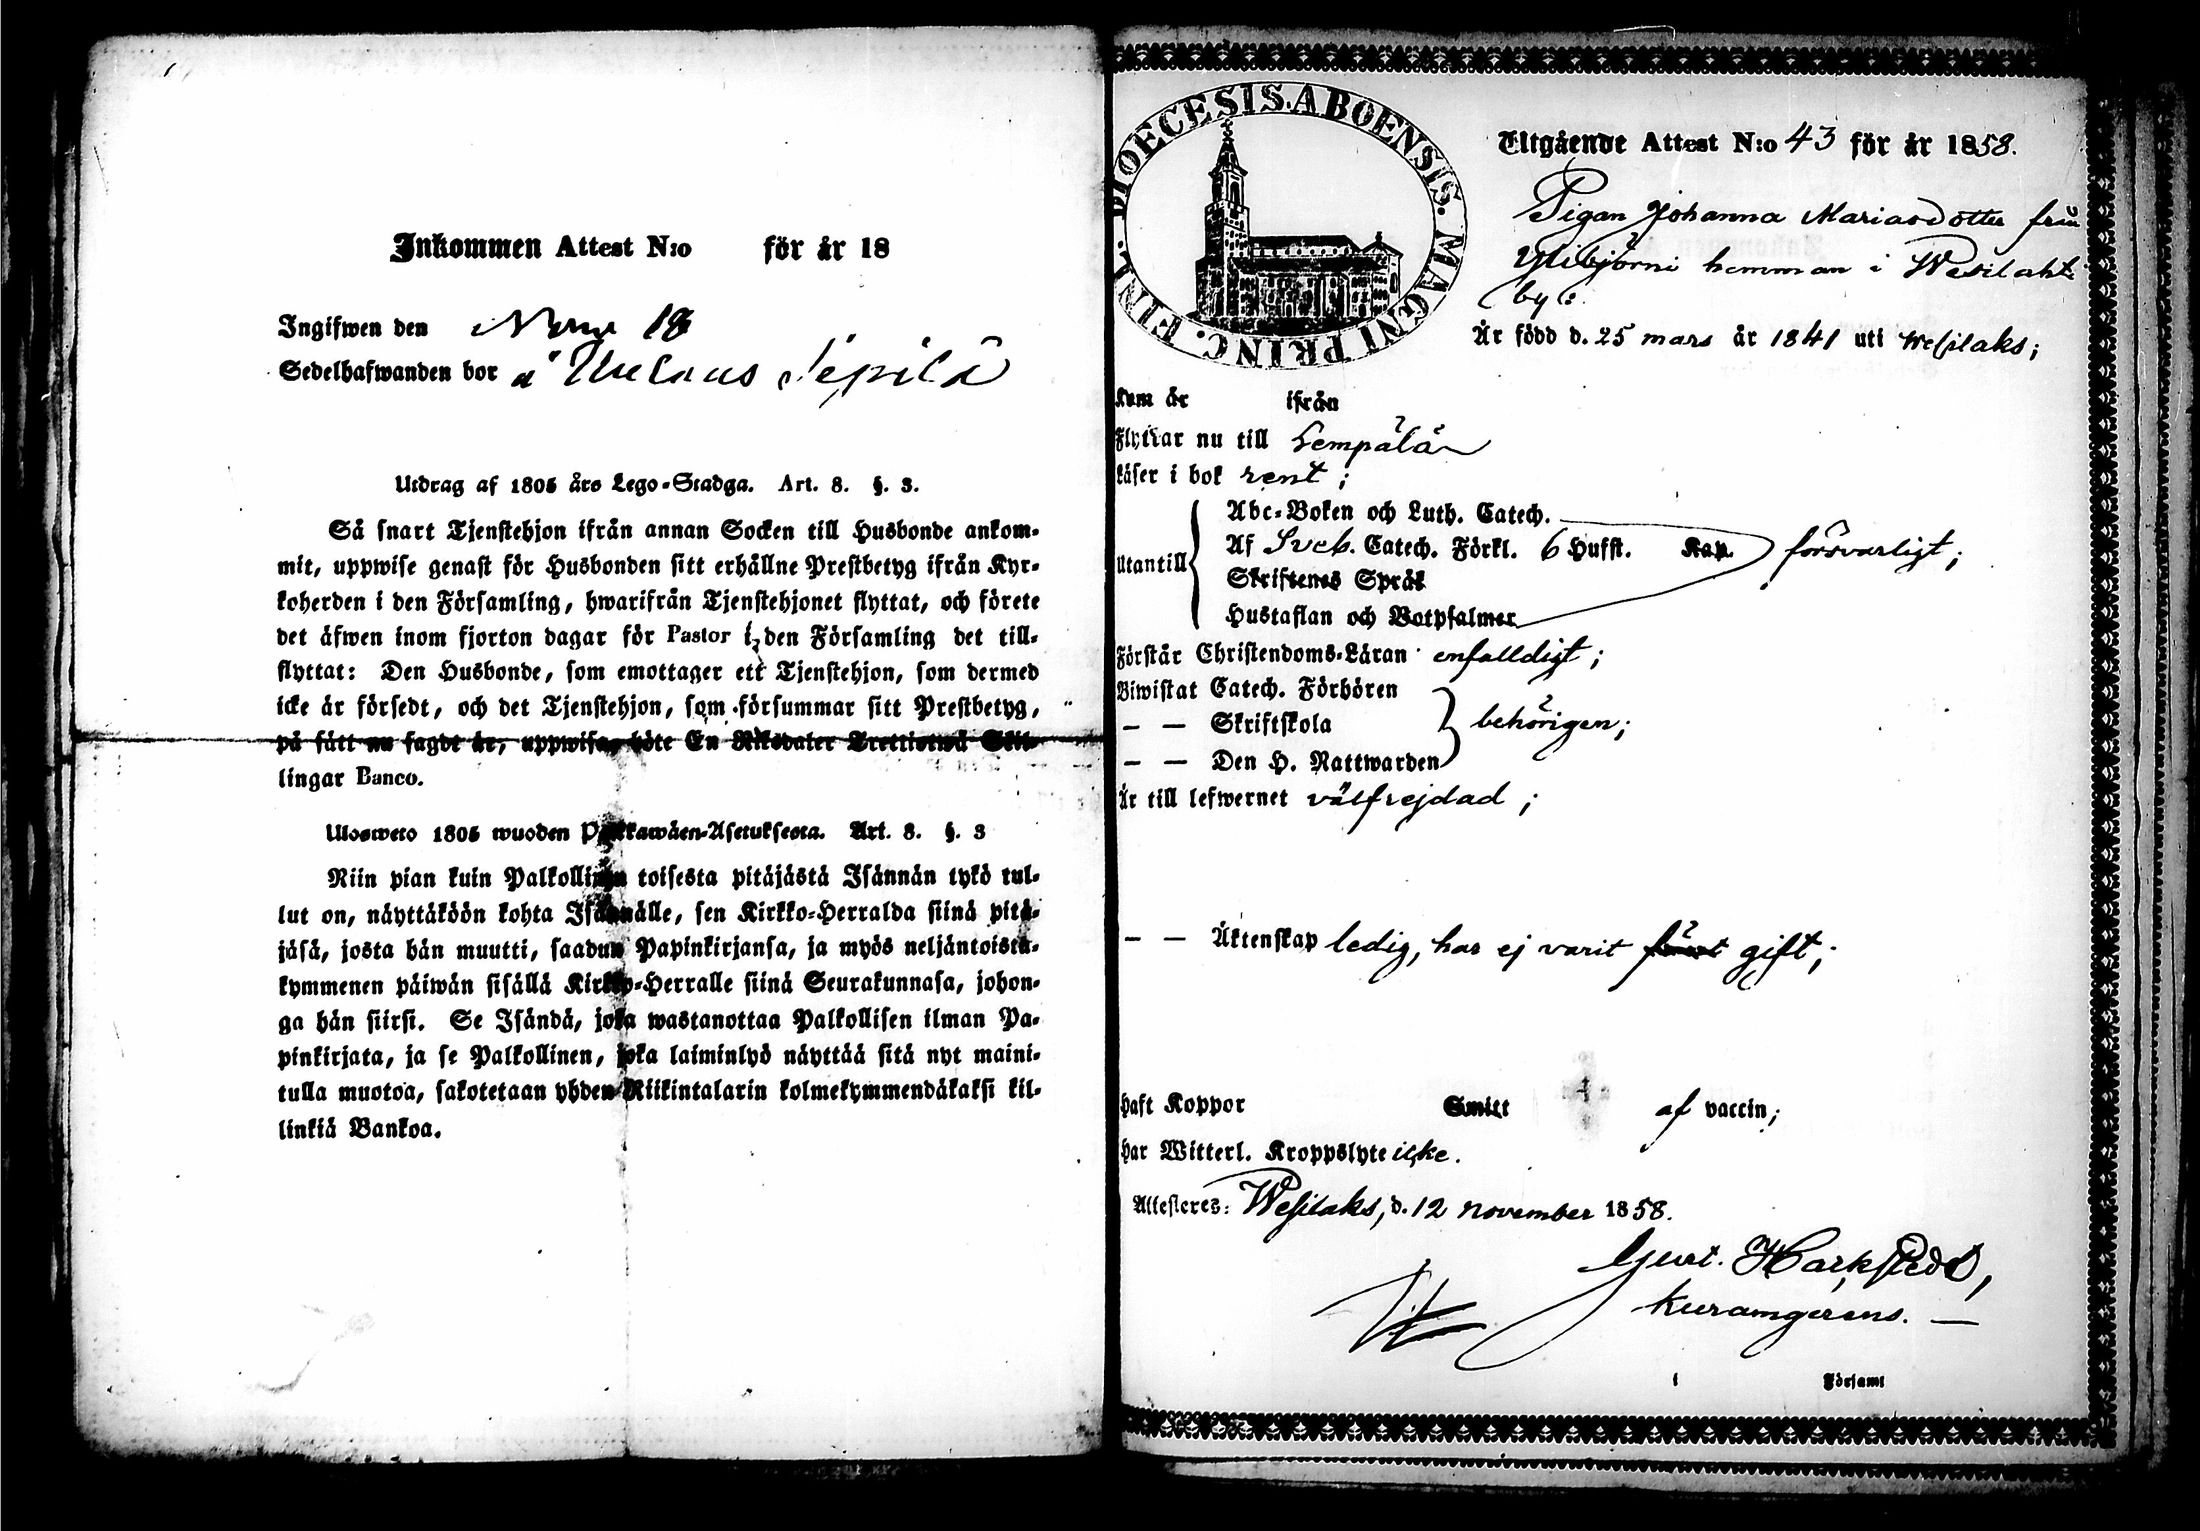 Inkommen Attest N:o för år 18
Ingifwen den Novr 18
Sedelhafwanden bor å Sepilä
Utdrag af 1805 års Lego-Stadga. Art. 8. §. 3.
Så snart Tjenstehjon ifrån annan Socken till Husbonde ankom-
mit, uppwise genast för Husbonden sitt erhållne Prestbetyg ifrån Kyr-
koherden i den Församling, hwarifrån Tjenstehjonet flyttat, och förete
det äfwen inom fjorton dagar för Pastor i den Församling det till-
flyttat: Den Husbonde, som emottager ett Tjenstehjon, som dermed
icke är försedt, och det Tjenstehjon, som försummar sitt Prestbetyg,
på sätt nu sagdt är, uppwisa, böte En Riksdaler Trettiotwå Skil-
lingar Banco.
Ulosweto 1805 wuoden Palkkawäen-Asetuksesta. Art. 8. §. 3
Niin pian kuin Palkollinen toisesta pitäjästä Isännän tykö tul-
lut on, näyttäköön kohta Isännälle, sen Kirkko-Herralda siinä pitä-
jäsä, josta hän muutti, saadun Papinkirjansa, ja myös neljäntoista-
kymmenen päiwän sisällä Kirkko-Herralle siinä Seurakunnasa, johon-
ga hän siirsi. Se Isändä, joka wastanottaa Palkollisen ilman Pa-
pinkirjata, ja se Palkollinen, joka laiminlyö näyttää sitä nyt maini-
tulla muotoa, sakotetaan yhden Riikintalarin kolmekymmendäkaksi kil-
linkiä Bankoa.
DIOECESIS. ABOENSIS. MAGNI PRINC. FINL.
Utgående Attest N:o 43 för år 1858.
Pigan Johanna Mariasdotter från
Ylibjörni hemman i Wesilahti
by:
Är född d. 25 mars år 1841 uti Wesilaks;
Kom år ifrån
Flyttar nu till Lempälä
Läser i bok rent;
Abc-Boken och Luth. Catech.
Utantill Af Sveb. Catech. Förkl. 6 Hufst. Kap. försvarligt;
Skriftenes Språk
Hustaflan och Botpsalmer
Förstår Christendoms-Läran enfalldigt;
Biwistat Catech. Förhören
— — Skriftskola behörigen;
— — Den H. Nattwarden
Är till lefwernet välfrejdad;
— — Äktenskap ledig, har ej varit gift;
Haft Koppor Smitt af vaccin;
Har Witterl. Kroppslyte icke.
Attesteres: Wesilaks, d. 12 november 1858.
Gust. Harkstedt,
kuramgerens. —
i Församl